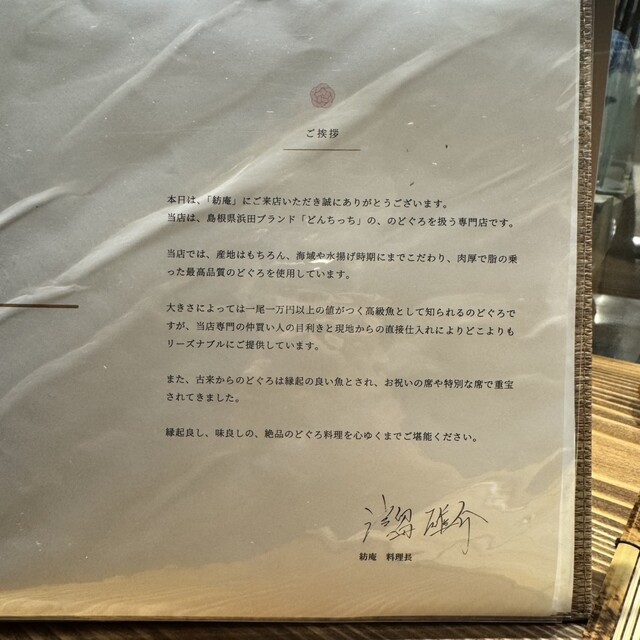 ご挨拶
本日は、「紡庵」にご来店いただき誠にありがとうございます。
当店は、島根県浜田ブランド「どんちっち」の、のどぐろを扱う専門店です。
当店では、産地はもちろん、海域や水揚げ時期にまでこだわり、肉厚で脂の乗
った最高品質のどぐろを使用しています。
大きさによっては一尾一万円以上の値がつく高級魚として知られるのどぐろで
すが、当店専門の仲買い人の目利きと現地からの直接仕入れによりどこよりも
リーズナブルにご提供しています。
また、古来からのどぐろは縁起の良い魚とされ、お祝いの席や特別な席で重宝
されてきました。
縁起良し、味良しの、絶品のどぐろ料理を心ゆくまでご堪能ください。
雄介
紡庵 料理長